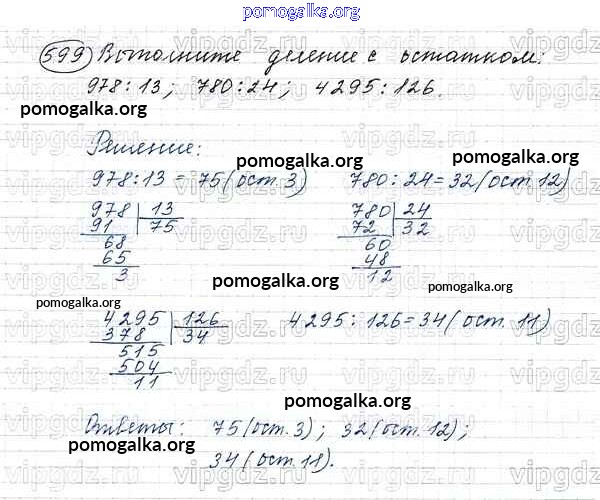 pomogalka.org
599 Выполните деление с остатком:
978:13; 780:24; 4295:126.
pomogalka.org pomogalka.org
Решение:
pomogalka.org pomogalka.org
978:13 = 75(ост.3) 780:24=32(ост.12)
978 13 780 24
91 75 72 32
68 60
65 48
3 12
pomogalka.org pomogalka.org
pomogalka.org
4295 126 4295:126=34(ост.11)
378 34
515
504
11
pomogalka.org
Ответы: 75(ост.3); 32(ост.12);
pomogalka.org
34(ост.11).
pomogalka.org
vipgdz.ru